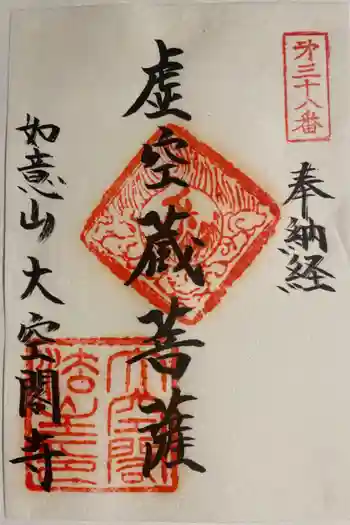 第三十八番
奉納経
虚空蔵菩薩
如意山大空閣寺